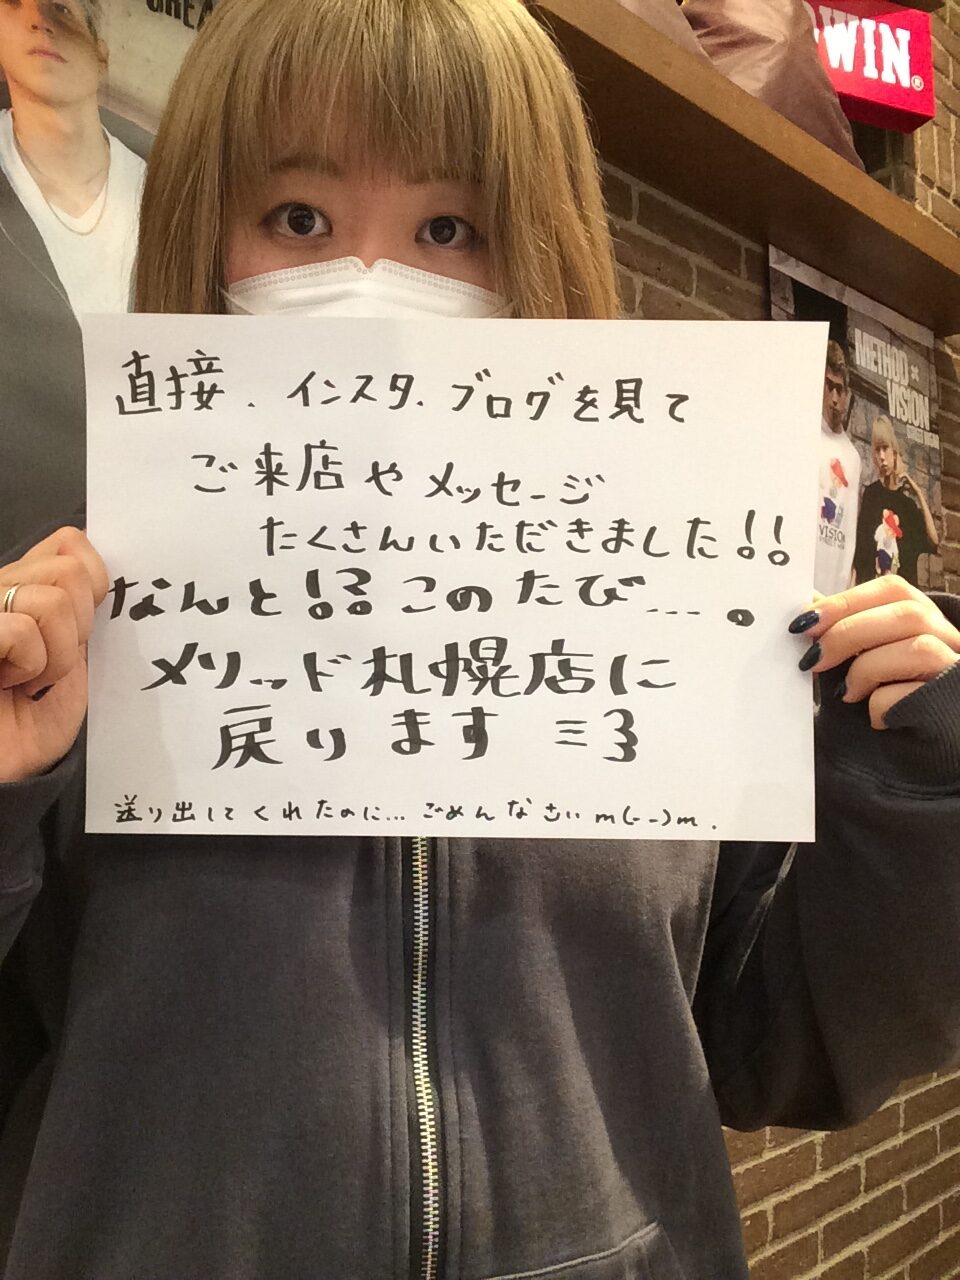 GREA
WIN®
METHOD×
VISION
STREET WEAR
VISION
直接、インスタ、ブログを見て
ご来店やメッセージ
たくさんいただきました!!
なんと!?このたび……。
メリッド札幌店に
戻ります 三3
送り出してくれたのに…ごめんなさいm(--)m.